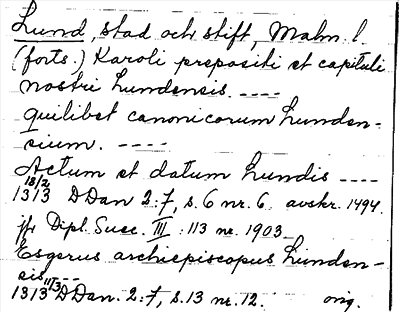 Lund, stad och stift, Malm. l.
(forts.) Karoli prepositi et capituli
nostri Lundensis. ----
quilibet canonicorum Lunden-
sium. ----
Actum et datum Lundis ----
18/2
1313 DDan 2:7, s. 6 nr. 6. avskr. 1494.
jfr Dipl. Suec. III : 113 nr. 1903
Esgerus archiepiscopus Lunden-
sis ---
11/3
1313 DDan. 2:7, s. 13 nr. 12. orig.